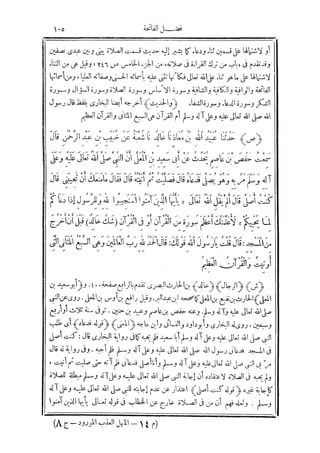 فضل الفاتحة
١٠٥
أو لاشتمالها على قسمين ثناء ودعاء كما يشير إليه حديث قسمت الصلاة بيني وبين عبدى نصفين
وقد تقدم فى «باب من ترك القراءة فى صلاته» من الجزء الخامس ص ٢٤٦ وقيل هى من الثناء
لاشتمالها على ما هو ثناء على الله تعالى فكأنها تثنى عليه بأسمائه الحسنى وصفاته العليا. ومن أسمائها
الفاتحة والوافية والكافية والشافية وسورة الأساس وسورة الصلاة وسورة السؤال وسورة
الشكر وسورة الدعاء وسورة الشفاء. ﴿والحديث﴾ أخرجه أيضا البخارى بلفظ قال رسول
الله صلى الله تعالى عليه وعلى آله وسلم أم القرآن هى السبع المثانى والقرآن العظيم
﴿ص﴾ حَدَّثَنَا عُبَيْدُ اللهِ بْنُ مُعَاذٍ نَا خَالِدٌ نَا شُعْبَةُ عَنْ خُبَيْبِ بْنِ عَبْدِ الرَّحْمَنِ قَالَ
سَمِعْتُ حَفْصَ بْنَ عَاصِمٍ يُحَدِّثُ عَنْ أَبِى سَعِيدِ بْنِ الْمُعَلَّى أَنَّ النَّبِىَّ صَلَّى اللهُ تَعَالَى عَلَيْهِ وَعَلَى
آلِهِ وَسَلَّمَ مَرَّ بِهِ وَهُوَ يُصَلِّى فَدَعَاهُ قَالَ فَصَلَّيْتُ ثُمَّ أَتَيْتُهُ قَالَ فَقَالَ مَا مَنَعَكَ أَنْ تُجِيبَنِى قَالَ
كُنْتُ أُصَلِّى قَالَ أَلَمْ يَقُلِ اللهُ تَعَالَى «يَا أَيُّهَا الَّذِينَ آمَنُوا اسْتَجِيبُوا لِلَّهِ وَلِلرَّسُولِ إِذَا دَعَاكُمْ
لِمَا يُحْيِيكُمْ» لَأُعَلِّمَنَّكَ أَعْظَمَ سُورَةٍ مِنَ الْقُرْآنِ أَوْ فِى الْقُرْآنِ «شَكَّ خَالِدٌ» قَبْلَ أَنْ أَخْرُجَ
مِنَ الْمَسْجِدِ قَالَ قُلْتُ يَا رَسُولَ اللهِ قَوْلُكَ قَالَ الْحَمْدُ لِلَّهِ رَبِّ الْعَالَمِينَ وَهِىَ السَّبْعُ الْمَثَانِى الَّتِى
أُوتِيتُ وَالْقُرْآنُ الْعَظِيمُ
﴿ش﴾ ﴿الرجال﴾ ﴿خالد﴾ بن الحارث البصرى تقدم بالرابع صفحة ١٠٠. و ﴿أبو سعيد بن
المعلى﴾ الحارث بن نفيع بن المعلى كما صححه ابن عبد البر. وقيل رافع بن أوس بن المعلى. روى عن النبى
صلى الله تعالى عليه وعلى آله وسلم. وعنه حفص بن عاصم وعبيد بن حنين. توفى سنة ثلاث أو أربع
وسبعين. روى له البخارى وأبو داود والنسائى وابن ماجه ﴿المعنى﴾ ﴿قوله فدعاه﴾ أى طلب
النبى صلى الله تعالى عليه وعلى آله وسلم أبا سعيد فلم يجبه كما فى رواية البخارى قال: كنت أصلى
فى المسجد فدعانى رسول الله صلى الله تعالى عليه وعلى آله وسلم فلم أجبه. وفى رواية له قال
مر بى النبى صلى الله تعالى عليه وعلى آله وسلم وأنا أصلى فدعانى فلم آته حتى صليت ثم أتيت.
ولم يجبه فى الصلاة لاعتقاده أن إجابة النبى صلى الله تعالى عليه وعلى آله وسلم مبطلة للصلاة
كإجابة غيره ﴿قوله كنت أصلى﴾ اعتذار عن عدم إجابته للنبى صلى الله تعالى عليه وعلى آله
وسلم. ولعله فهم أن من فى الصلاة خارج عن الخطاب فى قوله تعالى «يا أيها الذين آمنوا
(م ١٤ — المنهل العذب المورود — ج ٨)